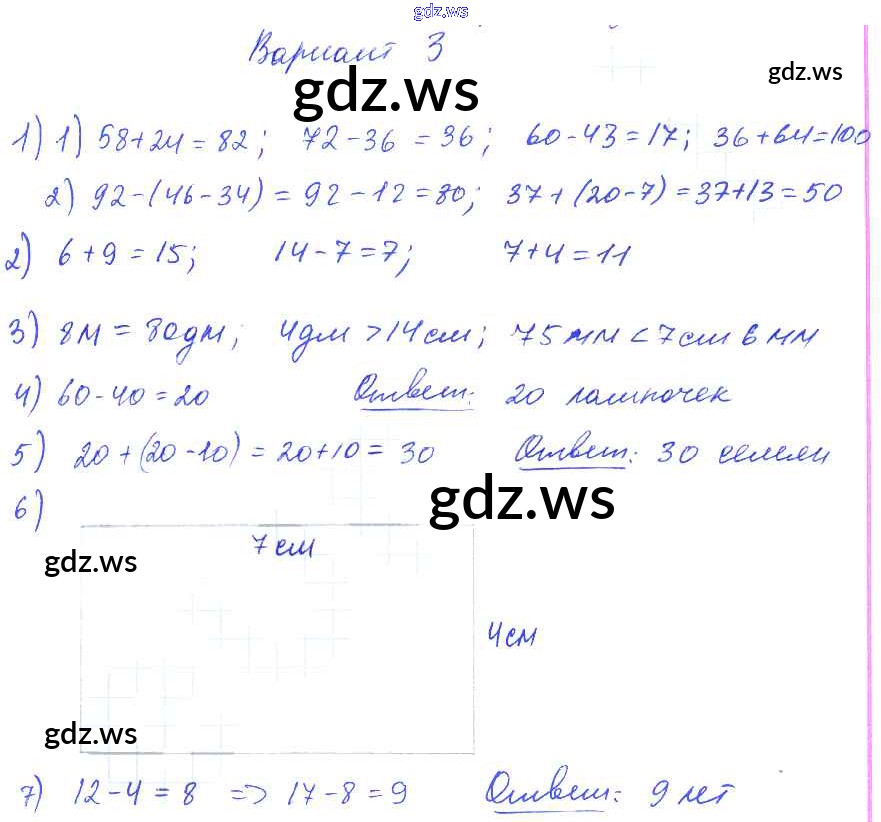 gdz.ws
Вариант 3
gdz.ws
gdz.ws
1) 1) 58+24=82; 72-36=36; 60-43=17; 36+64=100
2) 92-(46-34)=92-12=80; 37+(20-7)=37+13=50
2) 6+9=15; 14-7=7; 7+4=11
3) 8м = 80дм; 4дм >14см; 75 мм < 7см 6 мм
4) 60-40=20 Ответ: 20 лампочек
5) 20+(20-10)=20+10=30 Ответ: 30
6)
gdz.ws
7 см
gdz.ws
4 см
gdz.ws
7) 12-4=8 => 17-8=9 Ответ: 9 лет